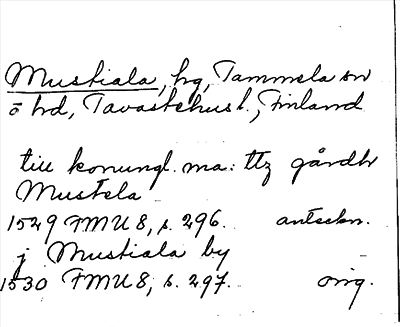 Mustiala, hg, Tammela sn
ö hd, Tavastehus l., Finland
till konungl. ma: ttz gårdh
Mustela
1529 FMU 8, s. 296. anteckn.
j Mustiala by
1530 FMU 8, s. 297. orig.